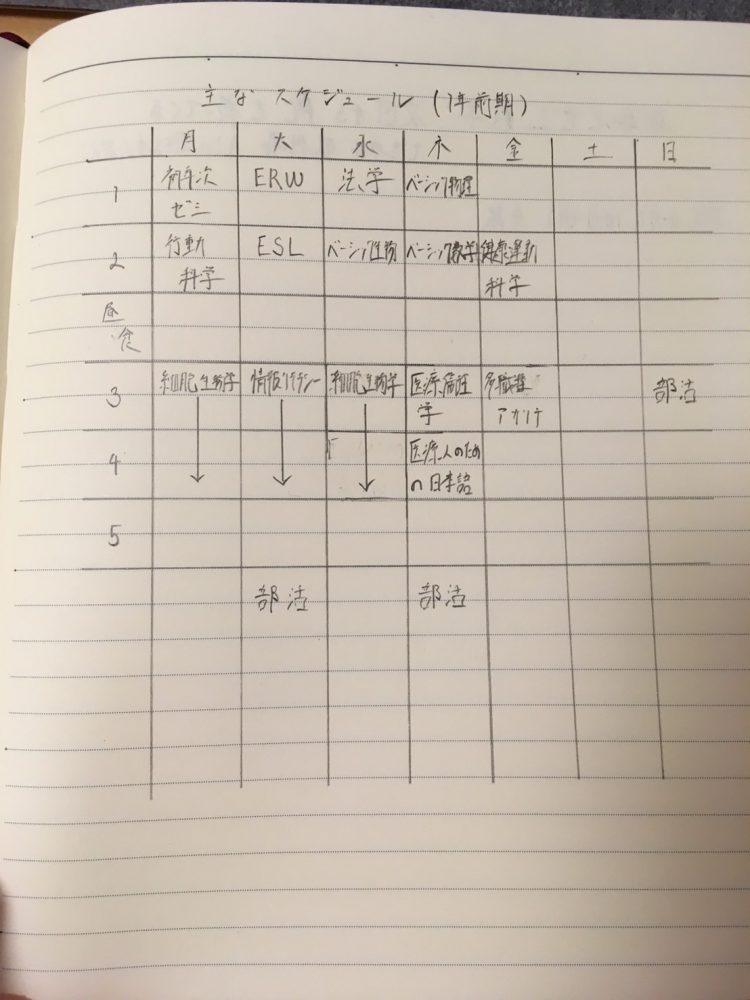 主なスケジュール (1年前期)
月 火 水 木 金 土 日
1 初年次 ERW 法学 ベーシック物理
ゼミ
2 行動 ESL ベーシック生物 ベーシック数学 健康運動
科学 科学
昼食
3 細胞生物学 情報リテラシー 細胞生物学 医療倫理 多職種 部活
学 アカリテ
4 医療人のため
の日本語
5
部活 部活